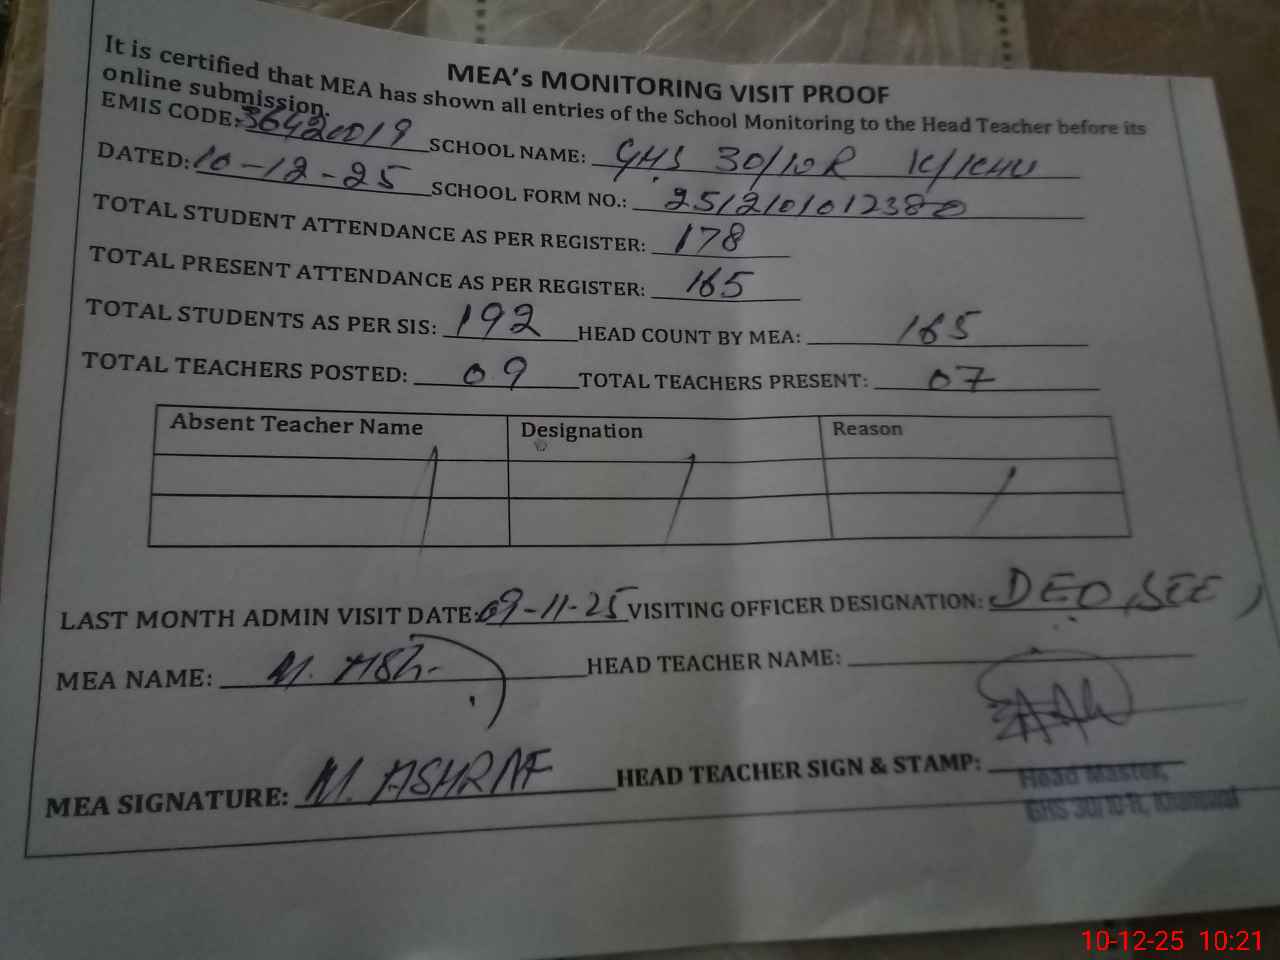 MEA's MONITORING VISIT PROOF
It is certified that MEA has shown all entries of the School Monitoring to the Head Teacher before its
online submission.
EMIS CODE: 36420019 SCHOOL NAME: GHS 30/10R K/KHW
DATED: 10-12-25 SCHOOL FORM NO.: 2512101012380
TOTAL STUDENT ATTENDANCE AS PER REGISTER: 178
TOTAL PRESENT ATTENDANCE AS PER REGISTER: 165
TOTAL STUDENTS AS PER SIS: 192 HEAD COUNT BY MEA: 165
TOTAL TEACHERS POSTED: 09 TOTAL TEACHERS PRESENT: 07
Absent Teacher Name Designation Reason
LAST MONTH ADMIN VISIT DATE: 09-11-25 VISITING OFFICER DESIGNATION: DEO, SEE
MEA NAME: M. HEAD TEACHER NAME:
MEA SIGNATURE: M. ASHRAF HEAD TEACHER SIGN & STAMP:
Head Master,
GHS 30/10-R, Khanewal
10-12-25 10:21